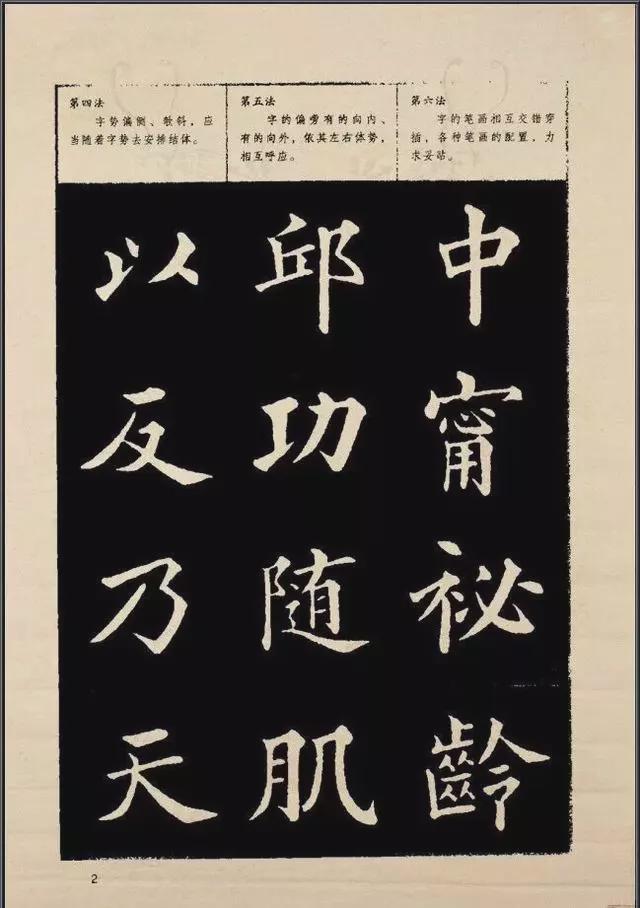 第四法
字势偏侧、欹斜，应
当随着字势去安排结体。
第五法
字的偏旁有的向内、
有的向外，依其左右体势，
相互呼应。
第六法
字的笔画相互交错穿
插，各种笔画的配置，力
求妥贴。
中甯祕齡
邱功随肌
以反乃天
2